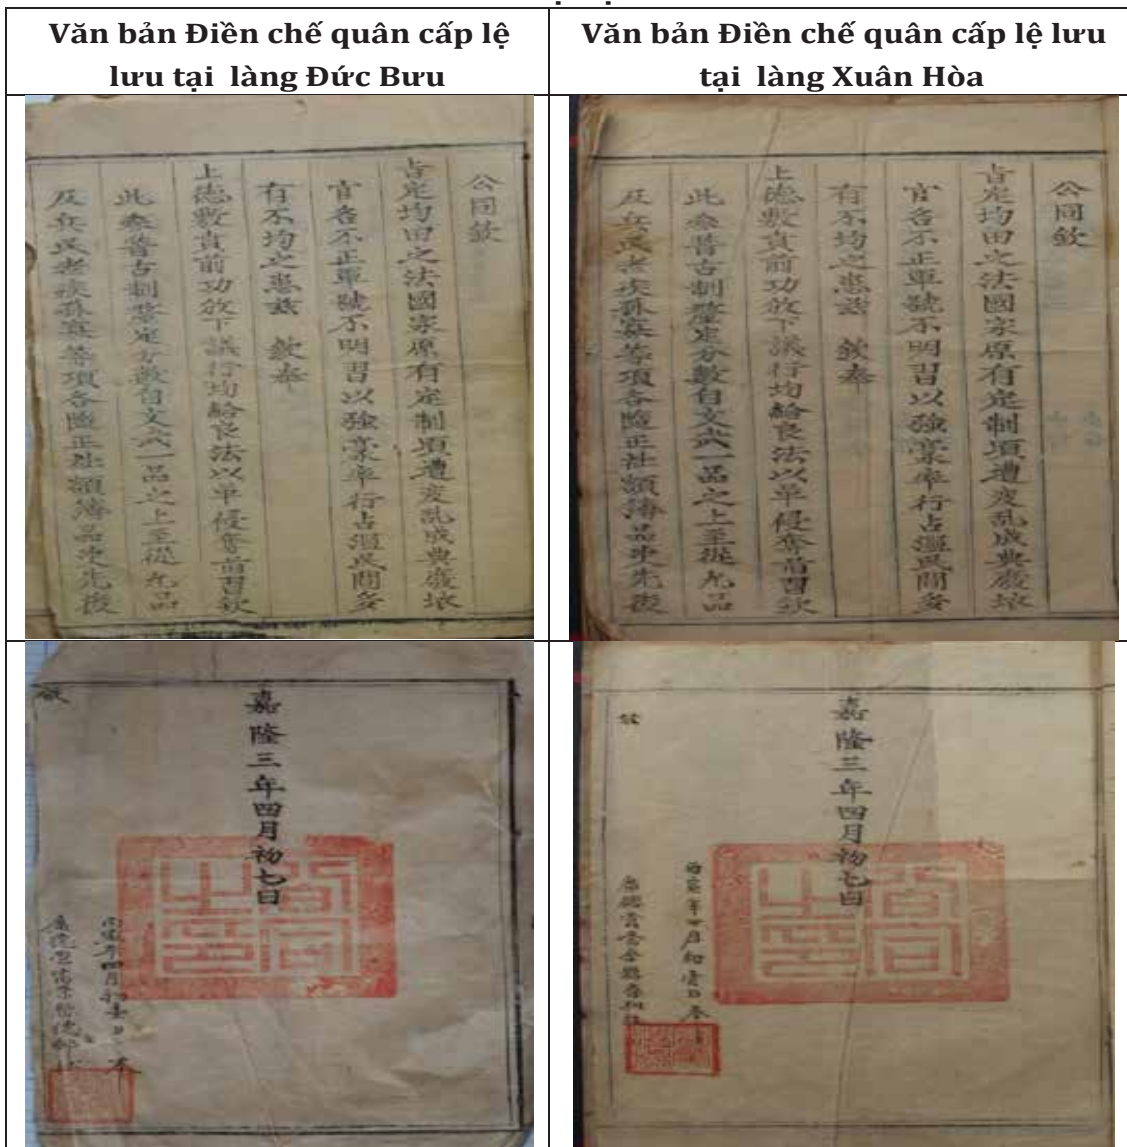 Văn bản Điền chế quân cấp lệ
lưu tại làng Đức Bưu
Văn bản Điền chế quân cấp lệ lưu
tại làng Xuân Hòa
公同欽
旨定均田之法國家原有定制項遭变乱成典廢墜
官名不正軍號不明習以強豪率行占濫民間多
有不均之患兹 欽奉
上德敷貢前功放下議行均給良法以革侵奪前習欽
此参普古制釐定分数自文武一品之上至從九品
及兵民老疾孤寡等項各隨正社額簿品次先後
公同欽
旨定均田之法國家原有定制項遭变乱成典廢墜
官名不正軍號不明習以強豪率行占濫民間多
有不均之患兹 欽奉
上德敷貢前功放下議行均給良法以革侵奪前習欽
此参普古制釐定分数自文武一品之上至從九品
及兵民老疾孤寡等項各隨正社額簿品次先後
嘉隆三年四月初七日
公同之印
年四月初壹日奉
嘉隆三年四月初七日
公同之印
年四月初壹日奉